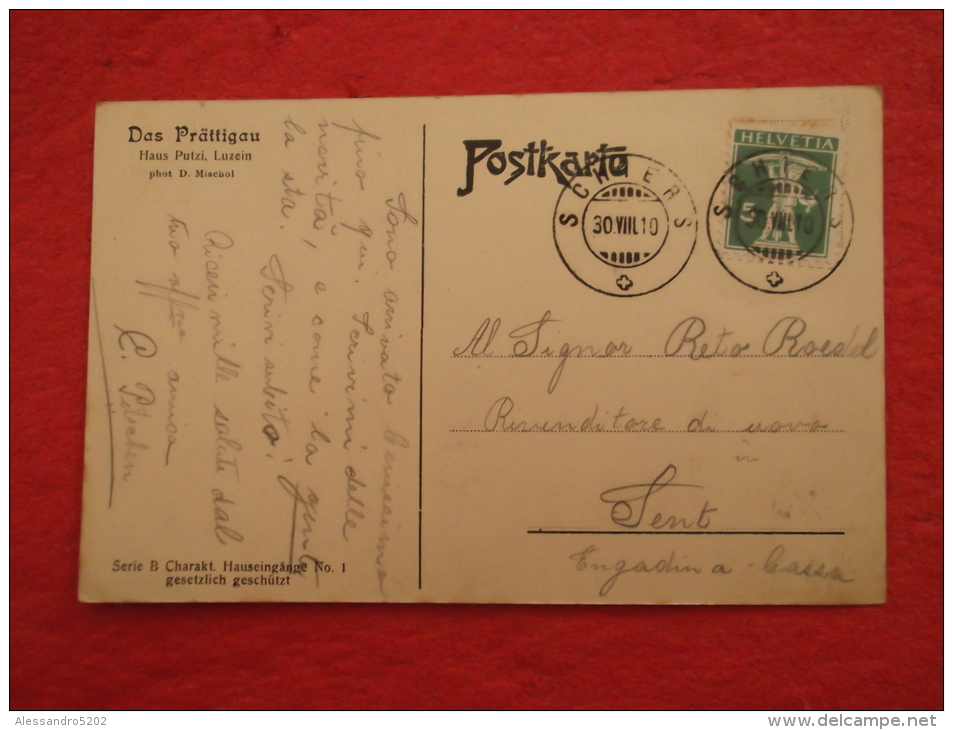 Das Prättigau
Haus Putzi, Luzein
phot D. Mischol
Postkarte
HELVETIA
5
SCHIERS
30.VIII.10
SCHIERS
30.VIII.10
Sono arrivato benissimo
fino qui. Scrivimi delle
novità, e come la gente
la sta. Scrivi subito!
Ricevi mille salute dal
tuo affmo amico
C.
Al Signor Reto
Rivenditore di uova
in
Sent
Engadina Bassa
Serie B Charakt. Hauseingänge No. 1
gesetzlich geschützt
Alessandro5202
delcampe.net